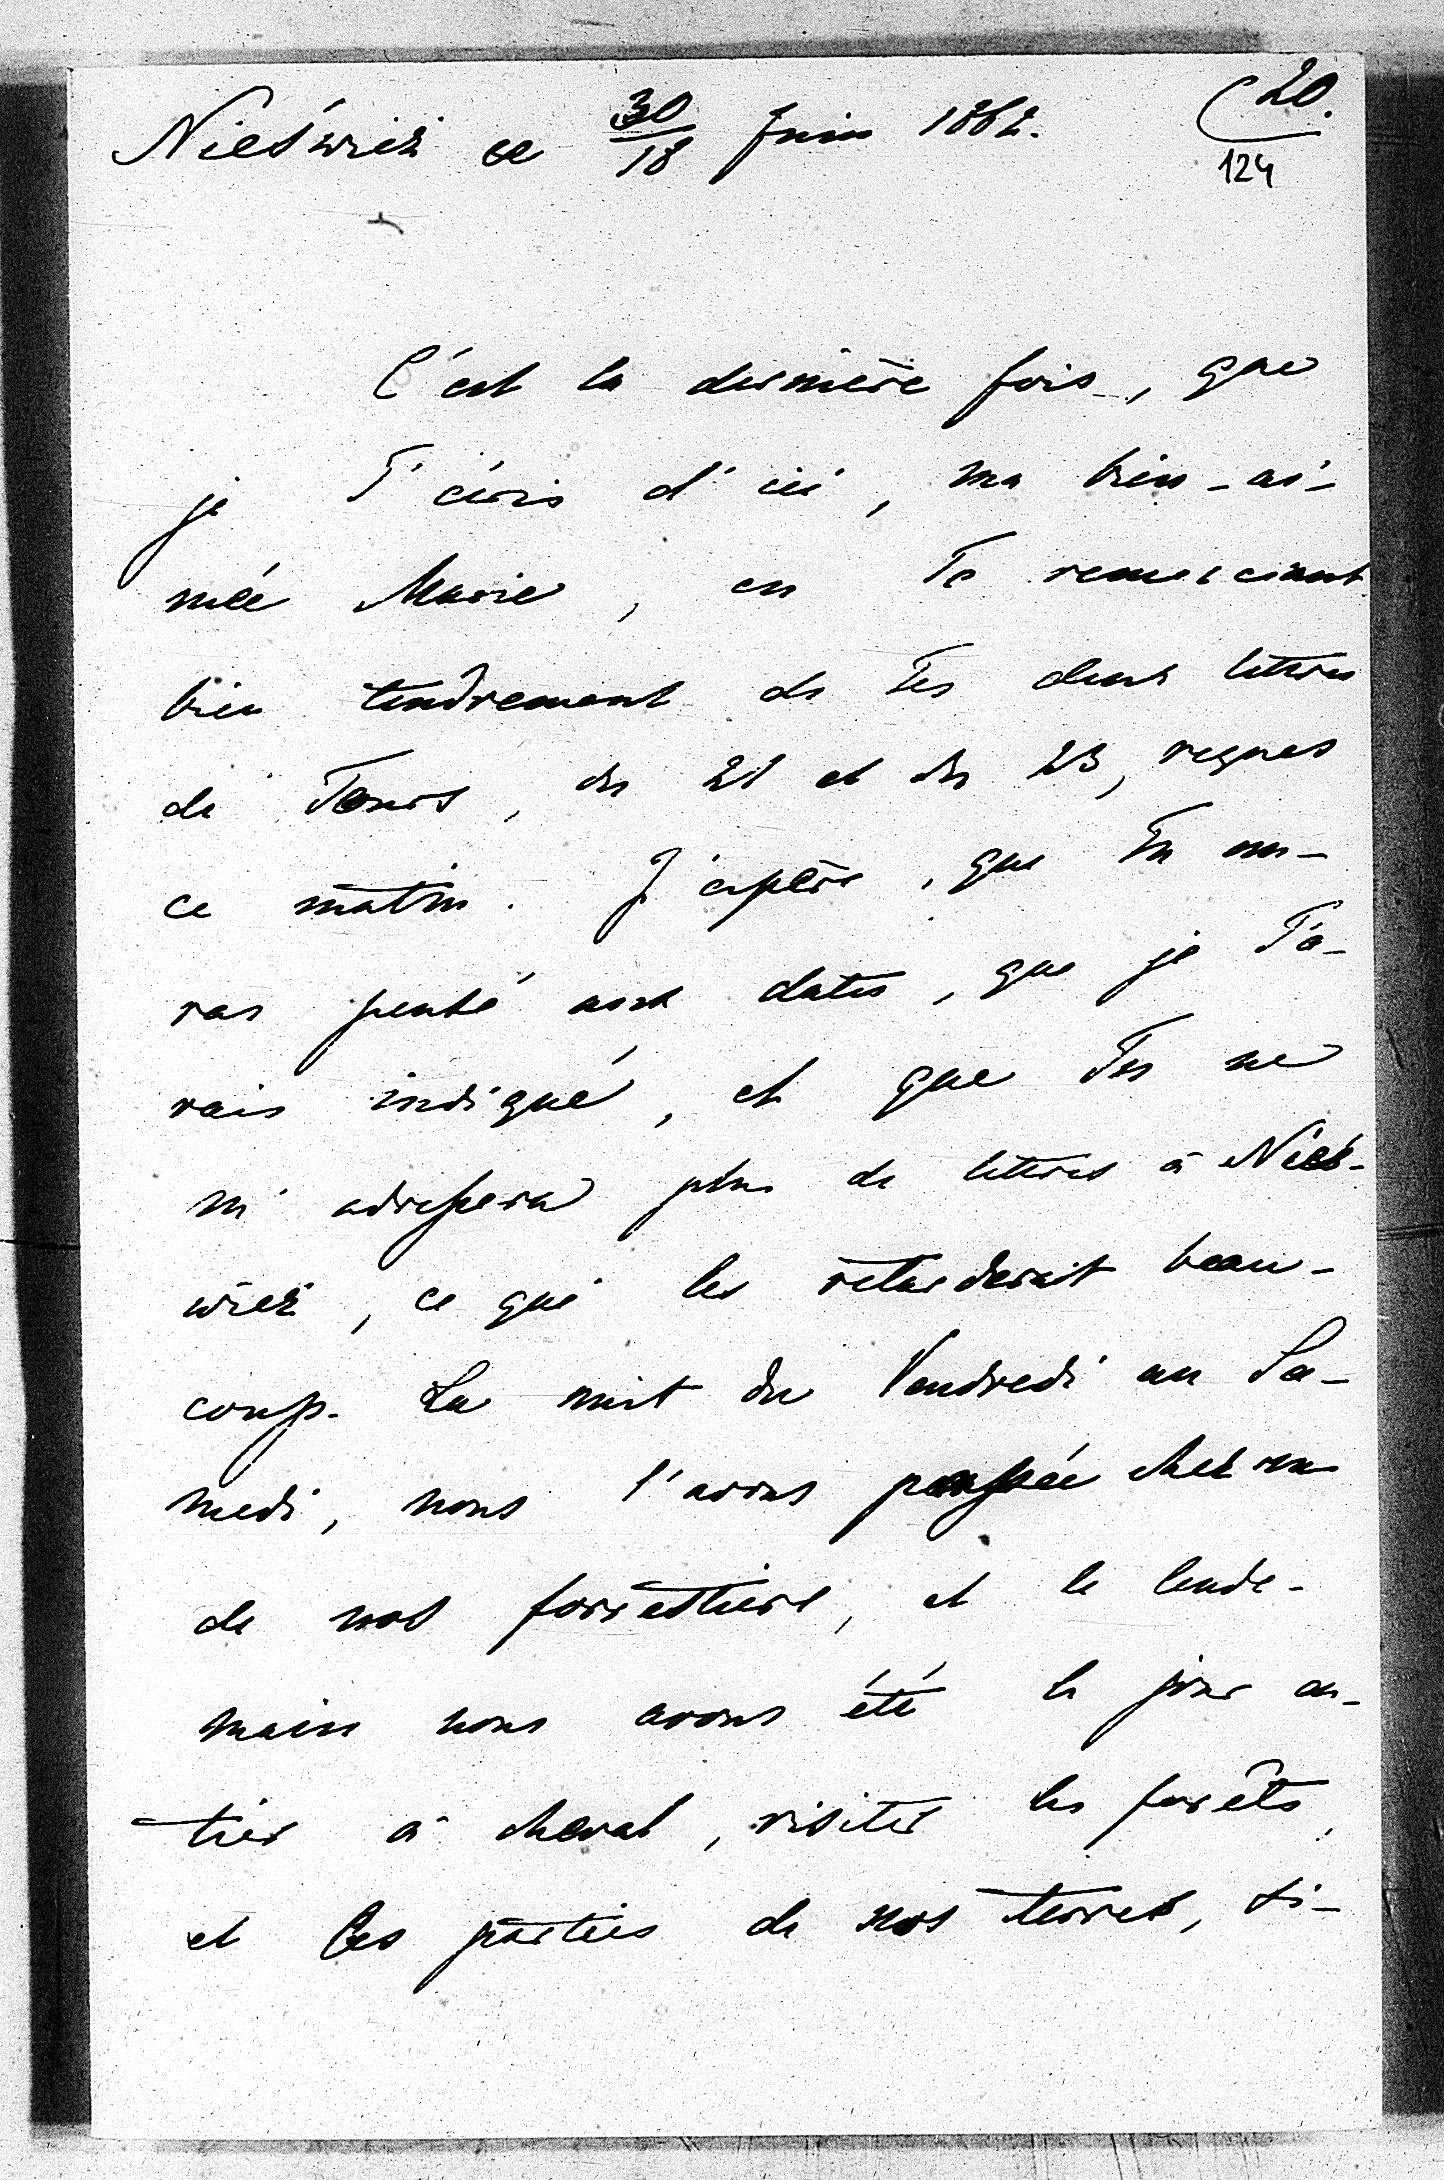 Nieświeź ce 30/18 Juin 1862. (20.
124
C'est la dernière fois, que
je T'écris d'ici, ma bien-ai-
mée Marie, en Te remerciant
bien tendrement de Tes deux lettres
de Tours, du 21 et du 23, reçues
ce matin. J'espère, que Tu au-
ras pensé aux dates, que je T'a-
vais indiqué, et que Tu ne
m'adressera plus de lettres à Nieś-
wież, ce qui les retarderait beau-
coup. La nuit du Vendredi au Sa-
medi, nous l'avons passée chez un
de nos forrestiers, et le lende-
main nous avons été le jour en-
tier à cheval, visiter les forêts,
et les parties de nos terres, si-